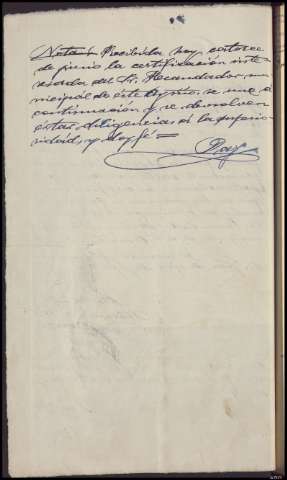 Nota= Recibida hoy catorce
de junio la certificación inte-
resada del Sr. Recaudador mu-
nicipal de este término se une á
continuación y se devuelven
estas diligencias á la superio-
ridad, y doy fé=